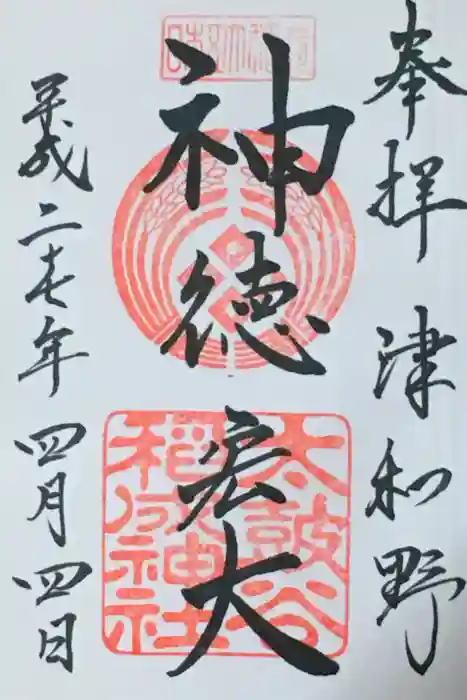 奉拝 津和野
神徳宏大
太鼓谷
稲成神社
平成二十七年四月四日